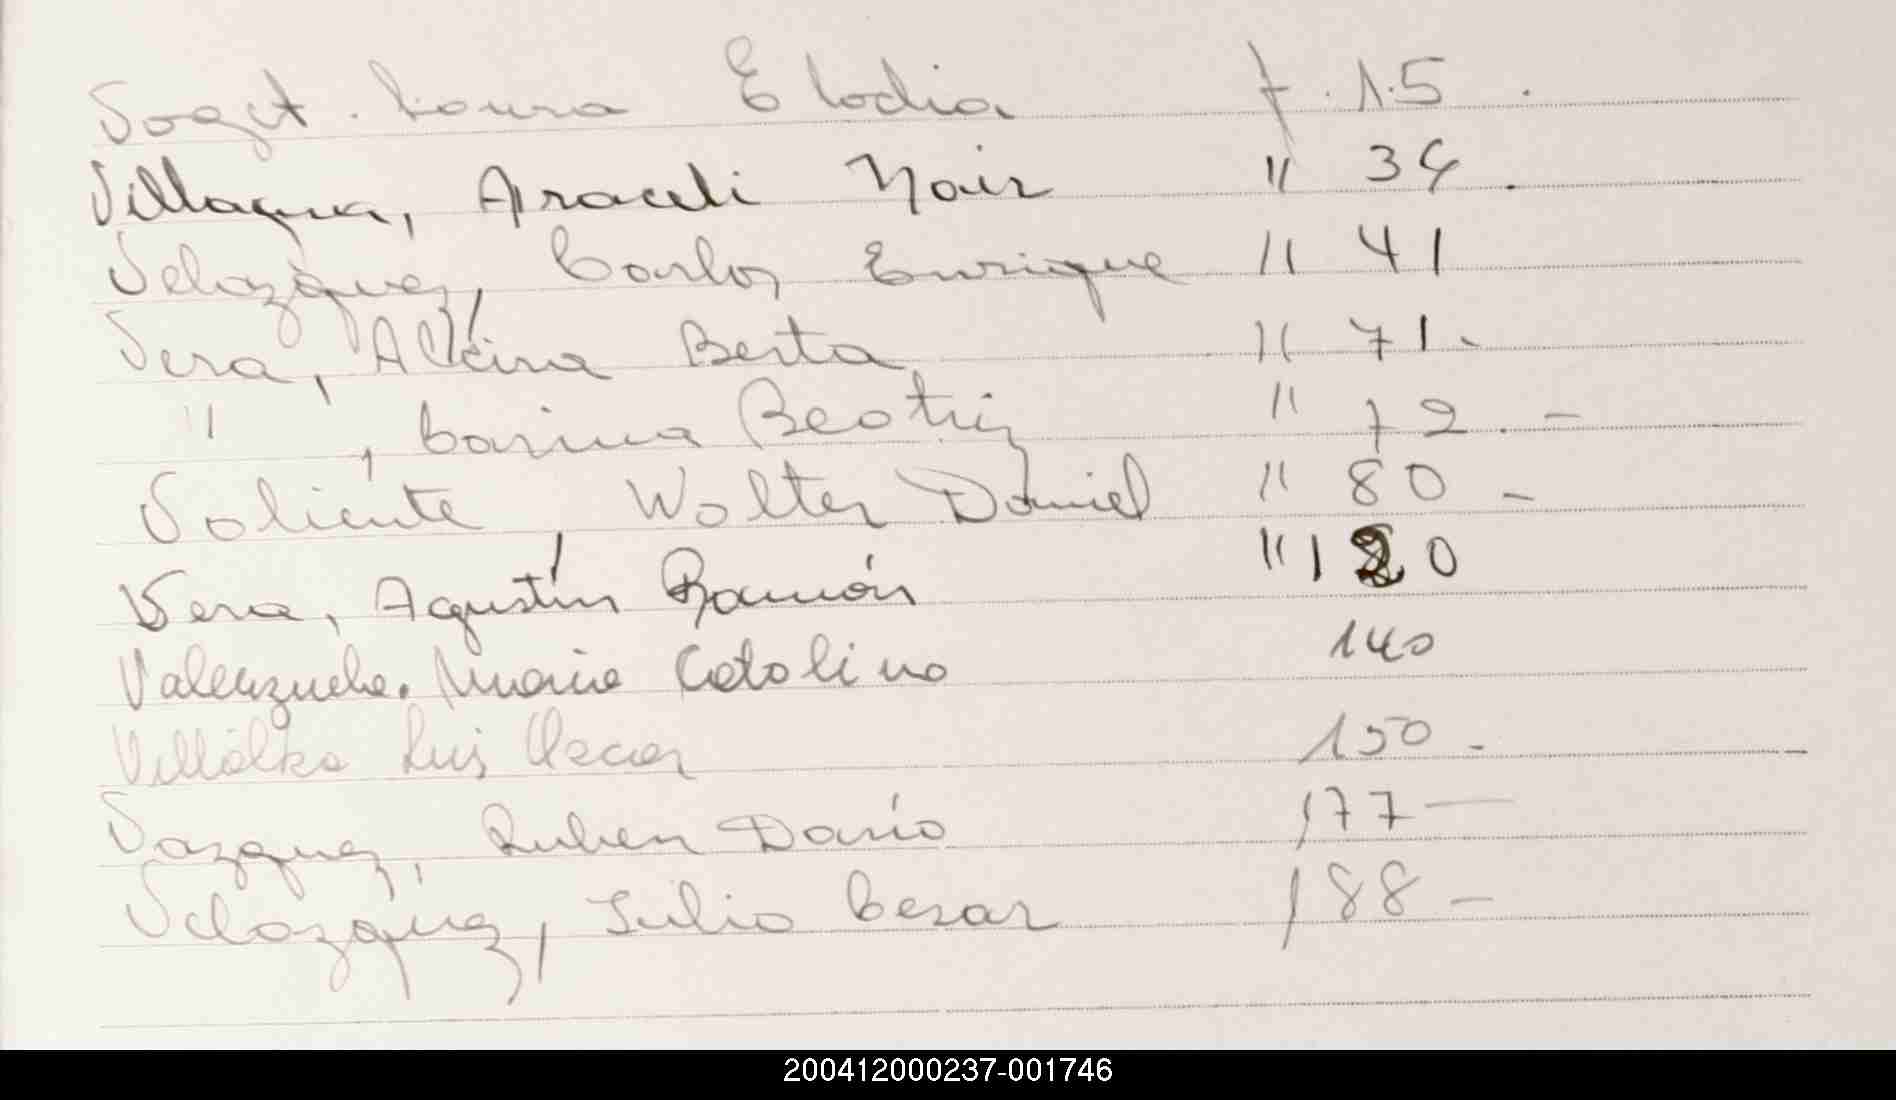 Vogt. Laura Elodia f. 15.
Villagra, Araceli Nair " 34.
Velazquez, Carlos Enrique " 41
Vera, Alcira Berta " 71.
" , Carina Beatriz " 72.-
Valiente, Walter Daniel " 80 -
Vera, Agustín Ramón " 120
Valenzuela. Maria Catalina 140
Villalba Luis Oscar 150.-
Vazquez, Ruben Darío 177 -
Velazquez, Julio Cesar 188 -
200412000237-001746